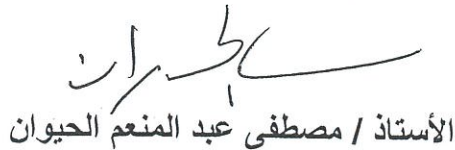 الأستاذ / مصطفى عبد المنعم الحيوان